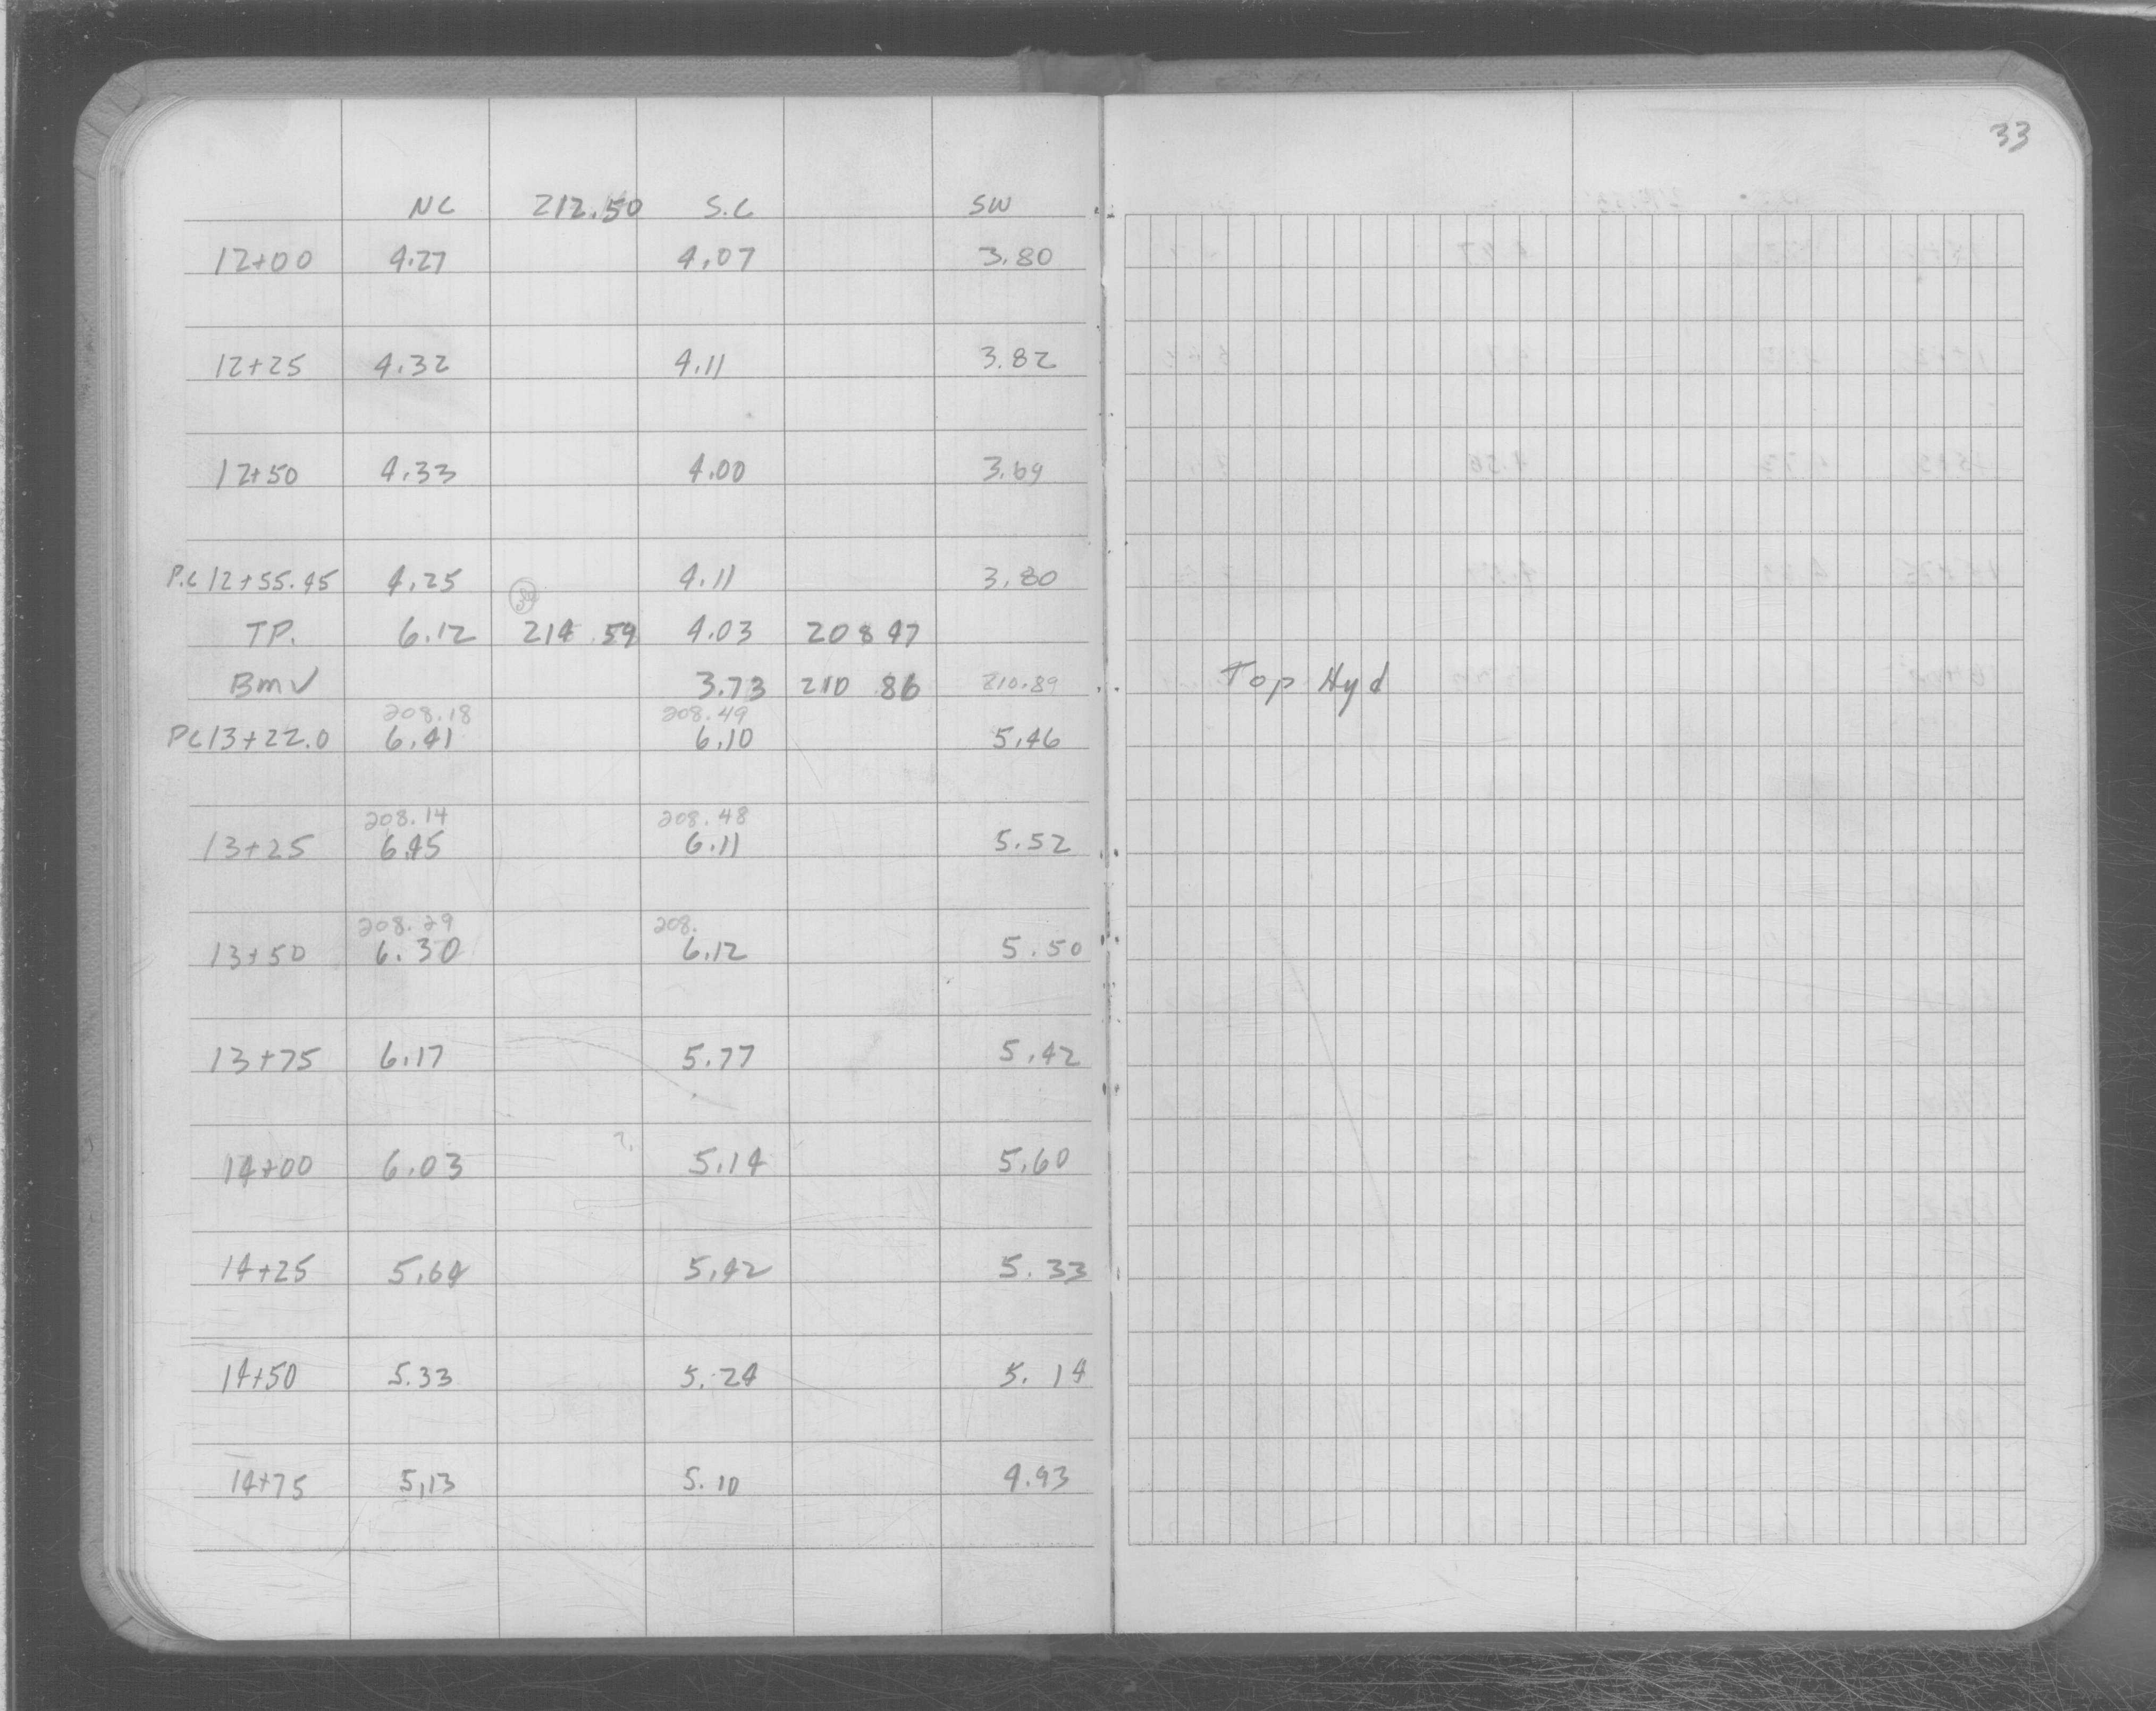 33
NC 212.50 S.C SW
12+00 4.27 4.07 3.80
12+25 4.32 4.11 3.82
12+50 4.33 4.00 3.69
P.C 12+55.45 4.25 4.11 3.80
TP. 6.12 214 59 4.03 208 47
BM √ 3.73 210 86 210.89 Top Hyd
208.18 208.49
PC 13+22.0 6.41 6.10 5.46
208.14 208.48
13+25 6.45 6.11 5.52
208.29 208.
13+50 6.30 6.12 5.50
13+75 6.17 5.77 5.42
14+00 6.03 5.14 5.60
14+25 5.64 5.42 5.33
14+50 5.33 5.24 5.14
14+75 5.13 5.10 4.93